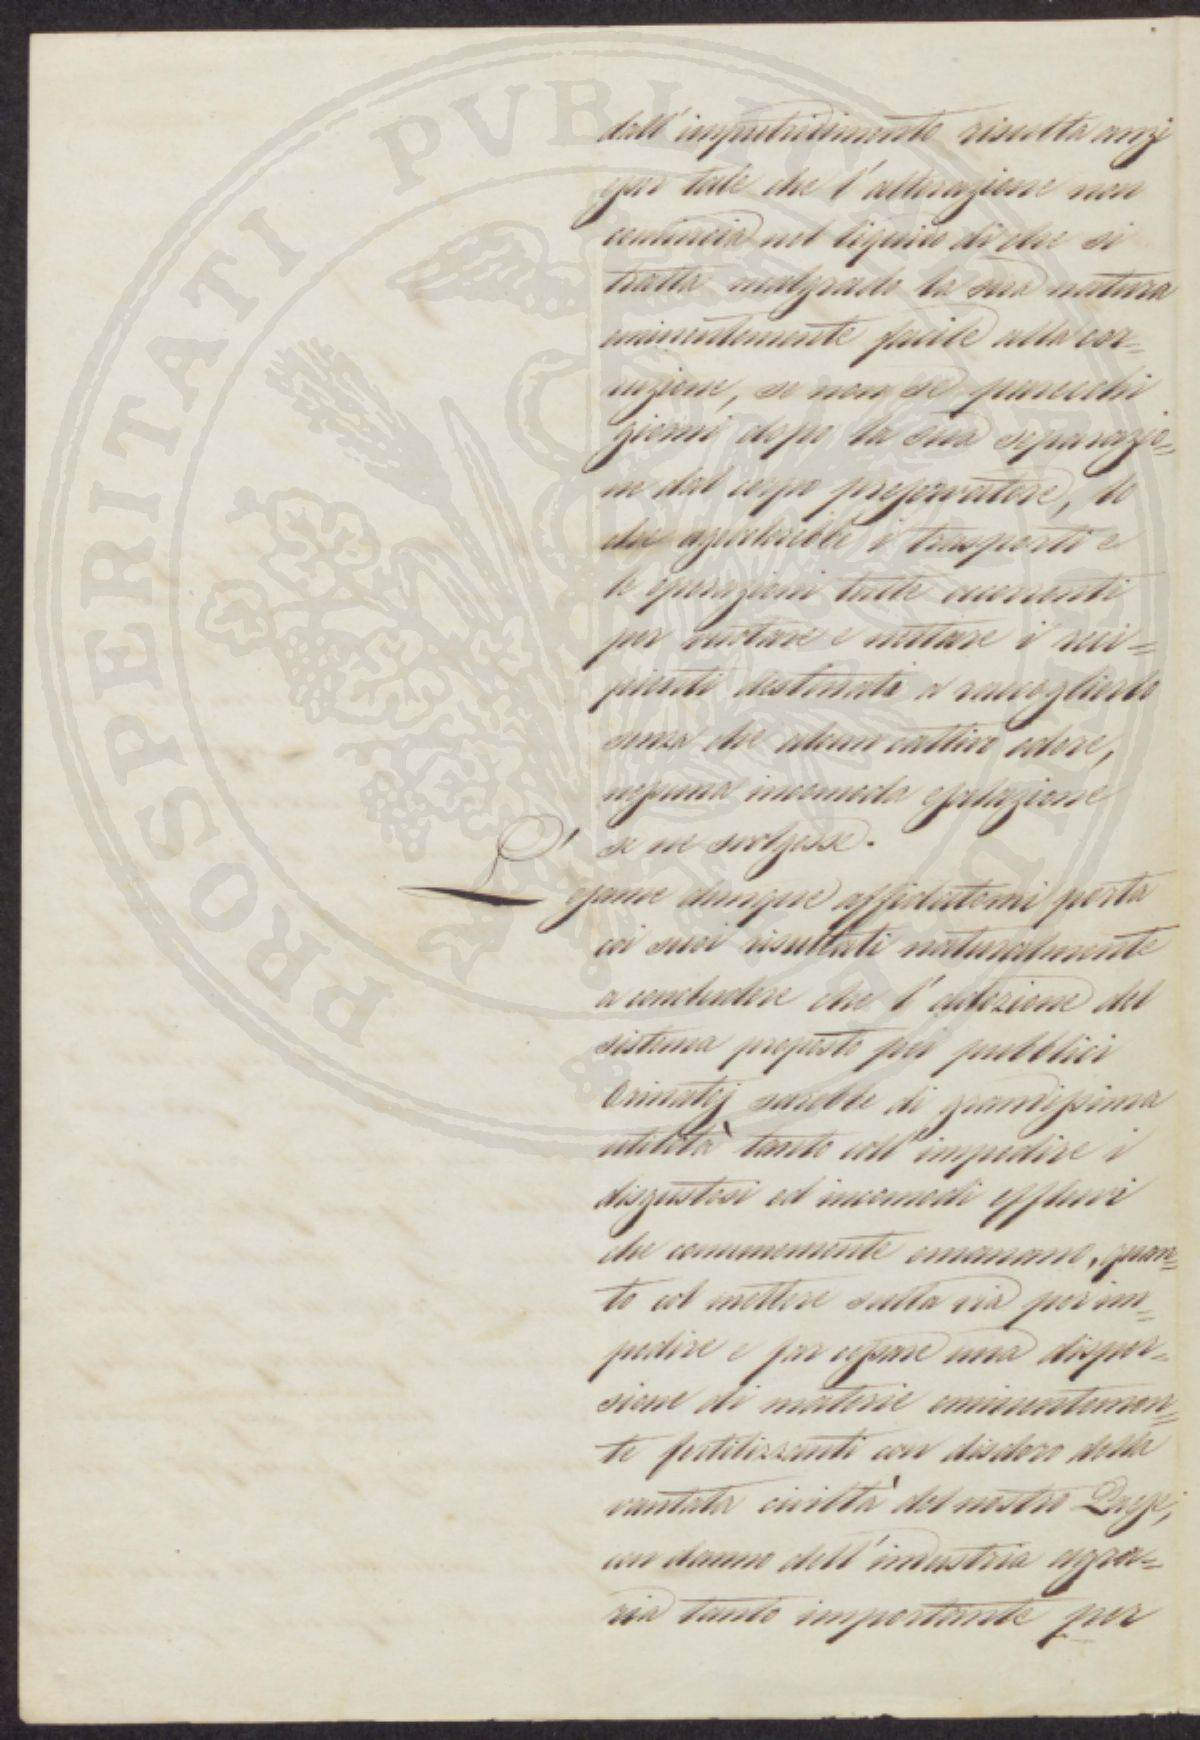 PROSPERITATI PVBLICAE
dall'imputridimento risulta anzi
per tale che l'alterazione non
comincia nel liquido di che si
tratta malgrado la sua natura
eminentemente facile alla cor=
ruzione, se non se parecchi
giorni dopo la sua separazio=
ne dal corpo preservatore, lo
che agevolerebbe i trasporti e
le operazioni tutte occorrenti
per vuotare e mutare i reci=
pienti destinati a raccoglierlo
senza che alcun cattivo odore,
nessuna incomoda esalazione
se ne svolgesse.
L'esame dunque affidatomi porta
coi suoi risultati naturalmente
a concludere che l'adozione del
sistema proposto pei pubblici
Orinatoj sarebbe di grandissima
utilità tanto coll'impedire i
disgustosi ed incomodi effluvi
che comunemente emanano, quan=
to col mettere sulla via per im=
pedire e far cessare una disper=
sione di materie eminentemen=
te fertilizzanti con disdoro della
vantata civiltà del nostro Paese,
con danno dell'industria agra=
ria tanto importante per